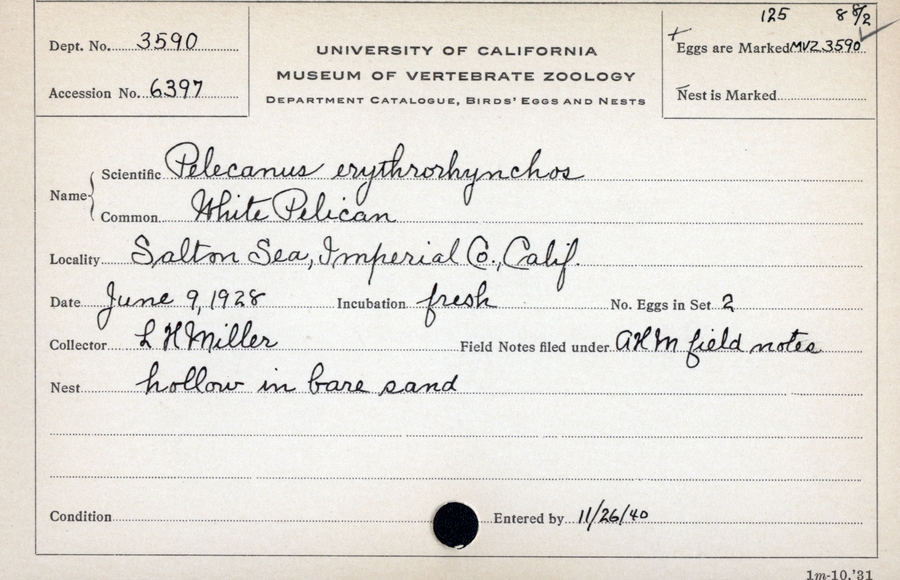 125 8 8/2
Dept. No. 3590
UNIVERSITY OF CALIFORNIA
+ Eggs are Marked MVZ 3590
MUSEUM OF VERTEBRATE ZOOLOGY
Accession No. 6397
DEPARTMENT CATALOGUE, BIRDS' EGGS AND NESTS
Nest is Marked
Name
Scientific Pelecanus erythrorhynchos
Common White Pelican
Locality Salton Sea, Imperial Co., Calif.
Date June 9, 1928 Incubation fresh No. Eggs in Set 2
Collector L H Miller Field Notes filed under AHM field notes
Nest hollow in bare sand
Condition Entered by 11/26/40
1m-10,'31